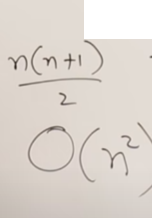 n(n+1)/2
O(n²)